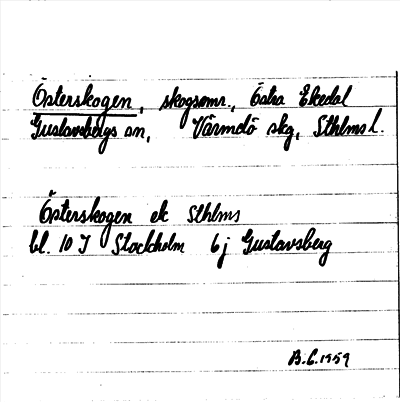 Österskogen, skogsomr., Östra Ekedal
Gustavsbergs sn, Värmdö skg, Sthlms l.
Österskogen ek Sthlms
bl. 10 J Stockholm 6j Gustavsberg
B.C. 1959